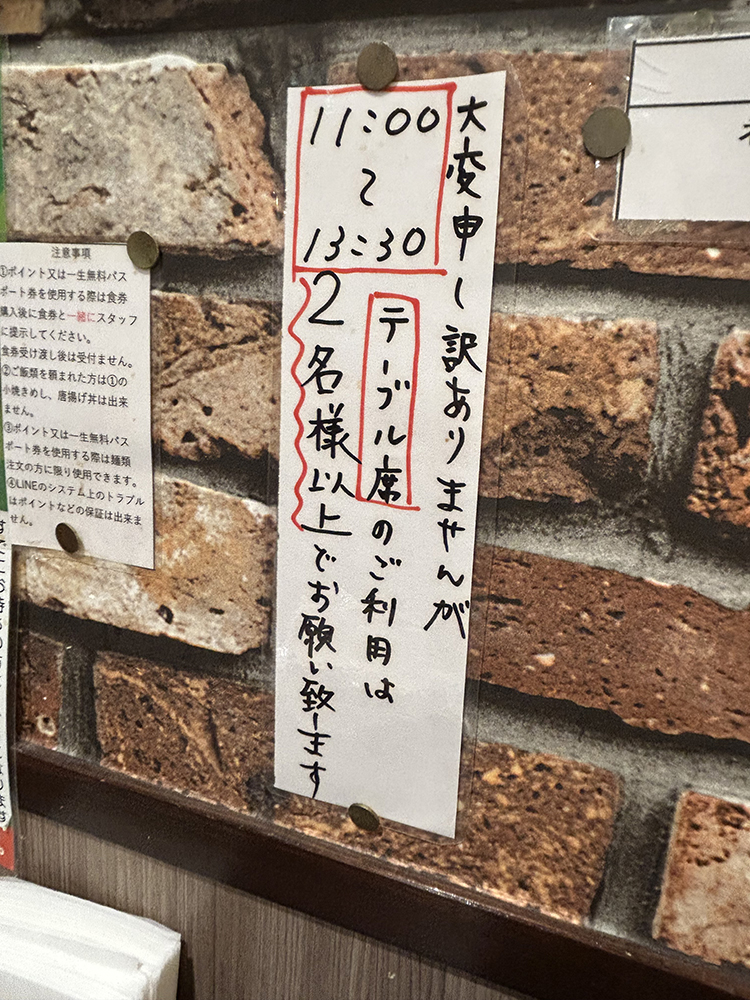 大変申し訳ありませんが
11:00
〜
13:30
テーブル席のご利用は
2名様以上でお願い致します
注意事項
①ポイント又は一生無料パス
ポート券を使用する際は食券
購入後に食券と一緒にスタッフ
に提示してください。
食券受け渡し後は受付ません。
②ご飯類を頼まれた方は①の
小焼きめし、唐揚げ丼は出来
ません。
③ポイント又は一生無料パス
ポート券を使用する際は麺類
注文の方に限り使用できます。
④LINEのシステム上のトラブル
はポイントなどの保証は出来ま
せん。